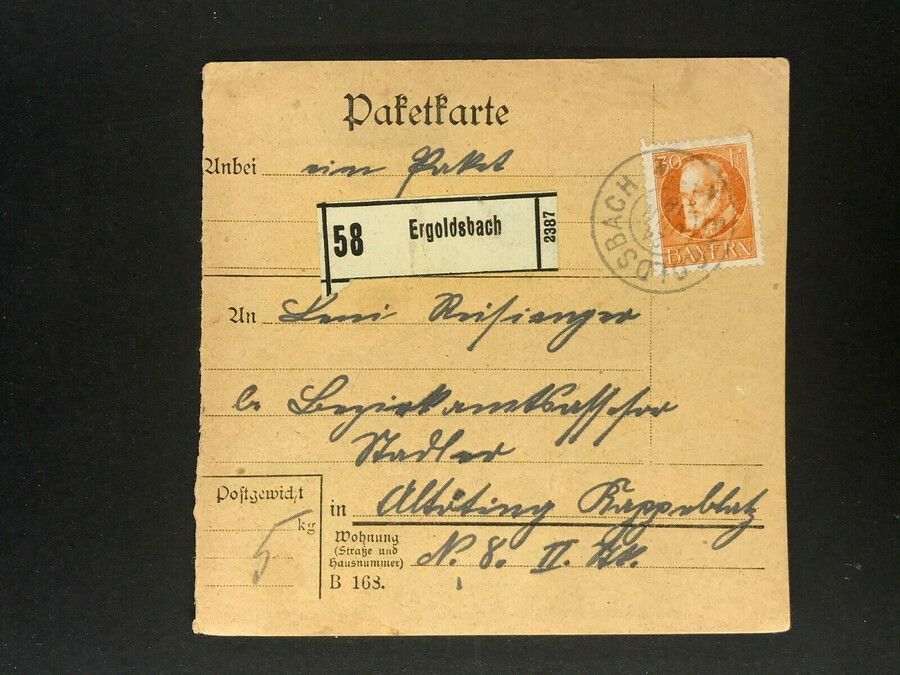 Paketkarte
Anbei ein Paket
58 Ergoldsbach 2387
30 Pf
BAYERN
OLDSBACH
An Leni Reisinger
b. Bezirksamtsassessor
Stadler
Postgewicht
kg
5
in Altötting Kappellplatz
Wohnung
(Straße und
Hausnummer)
N. 8. II. St.
B 168.